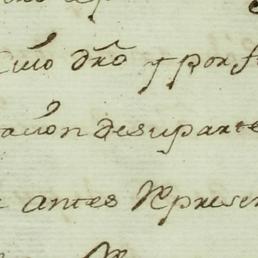 Cuio dro y por s
acion de su parte
antes Represen